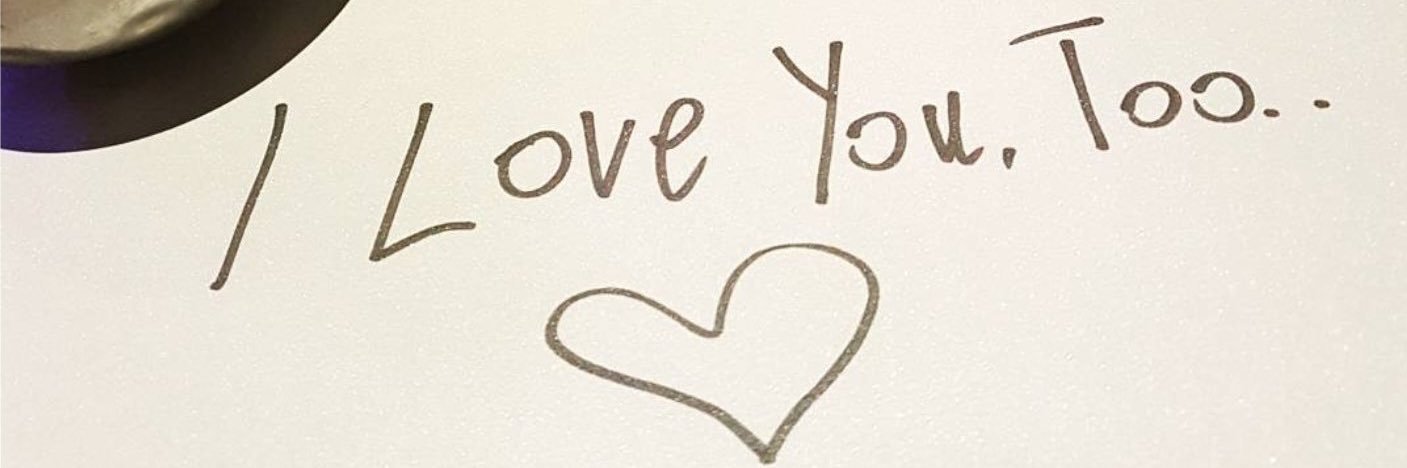 I Love You, Too..